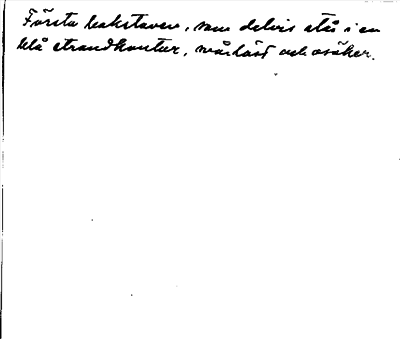 Första bokstaven, som delvis stå i en
blå strandkontur, svårläst och osäker.